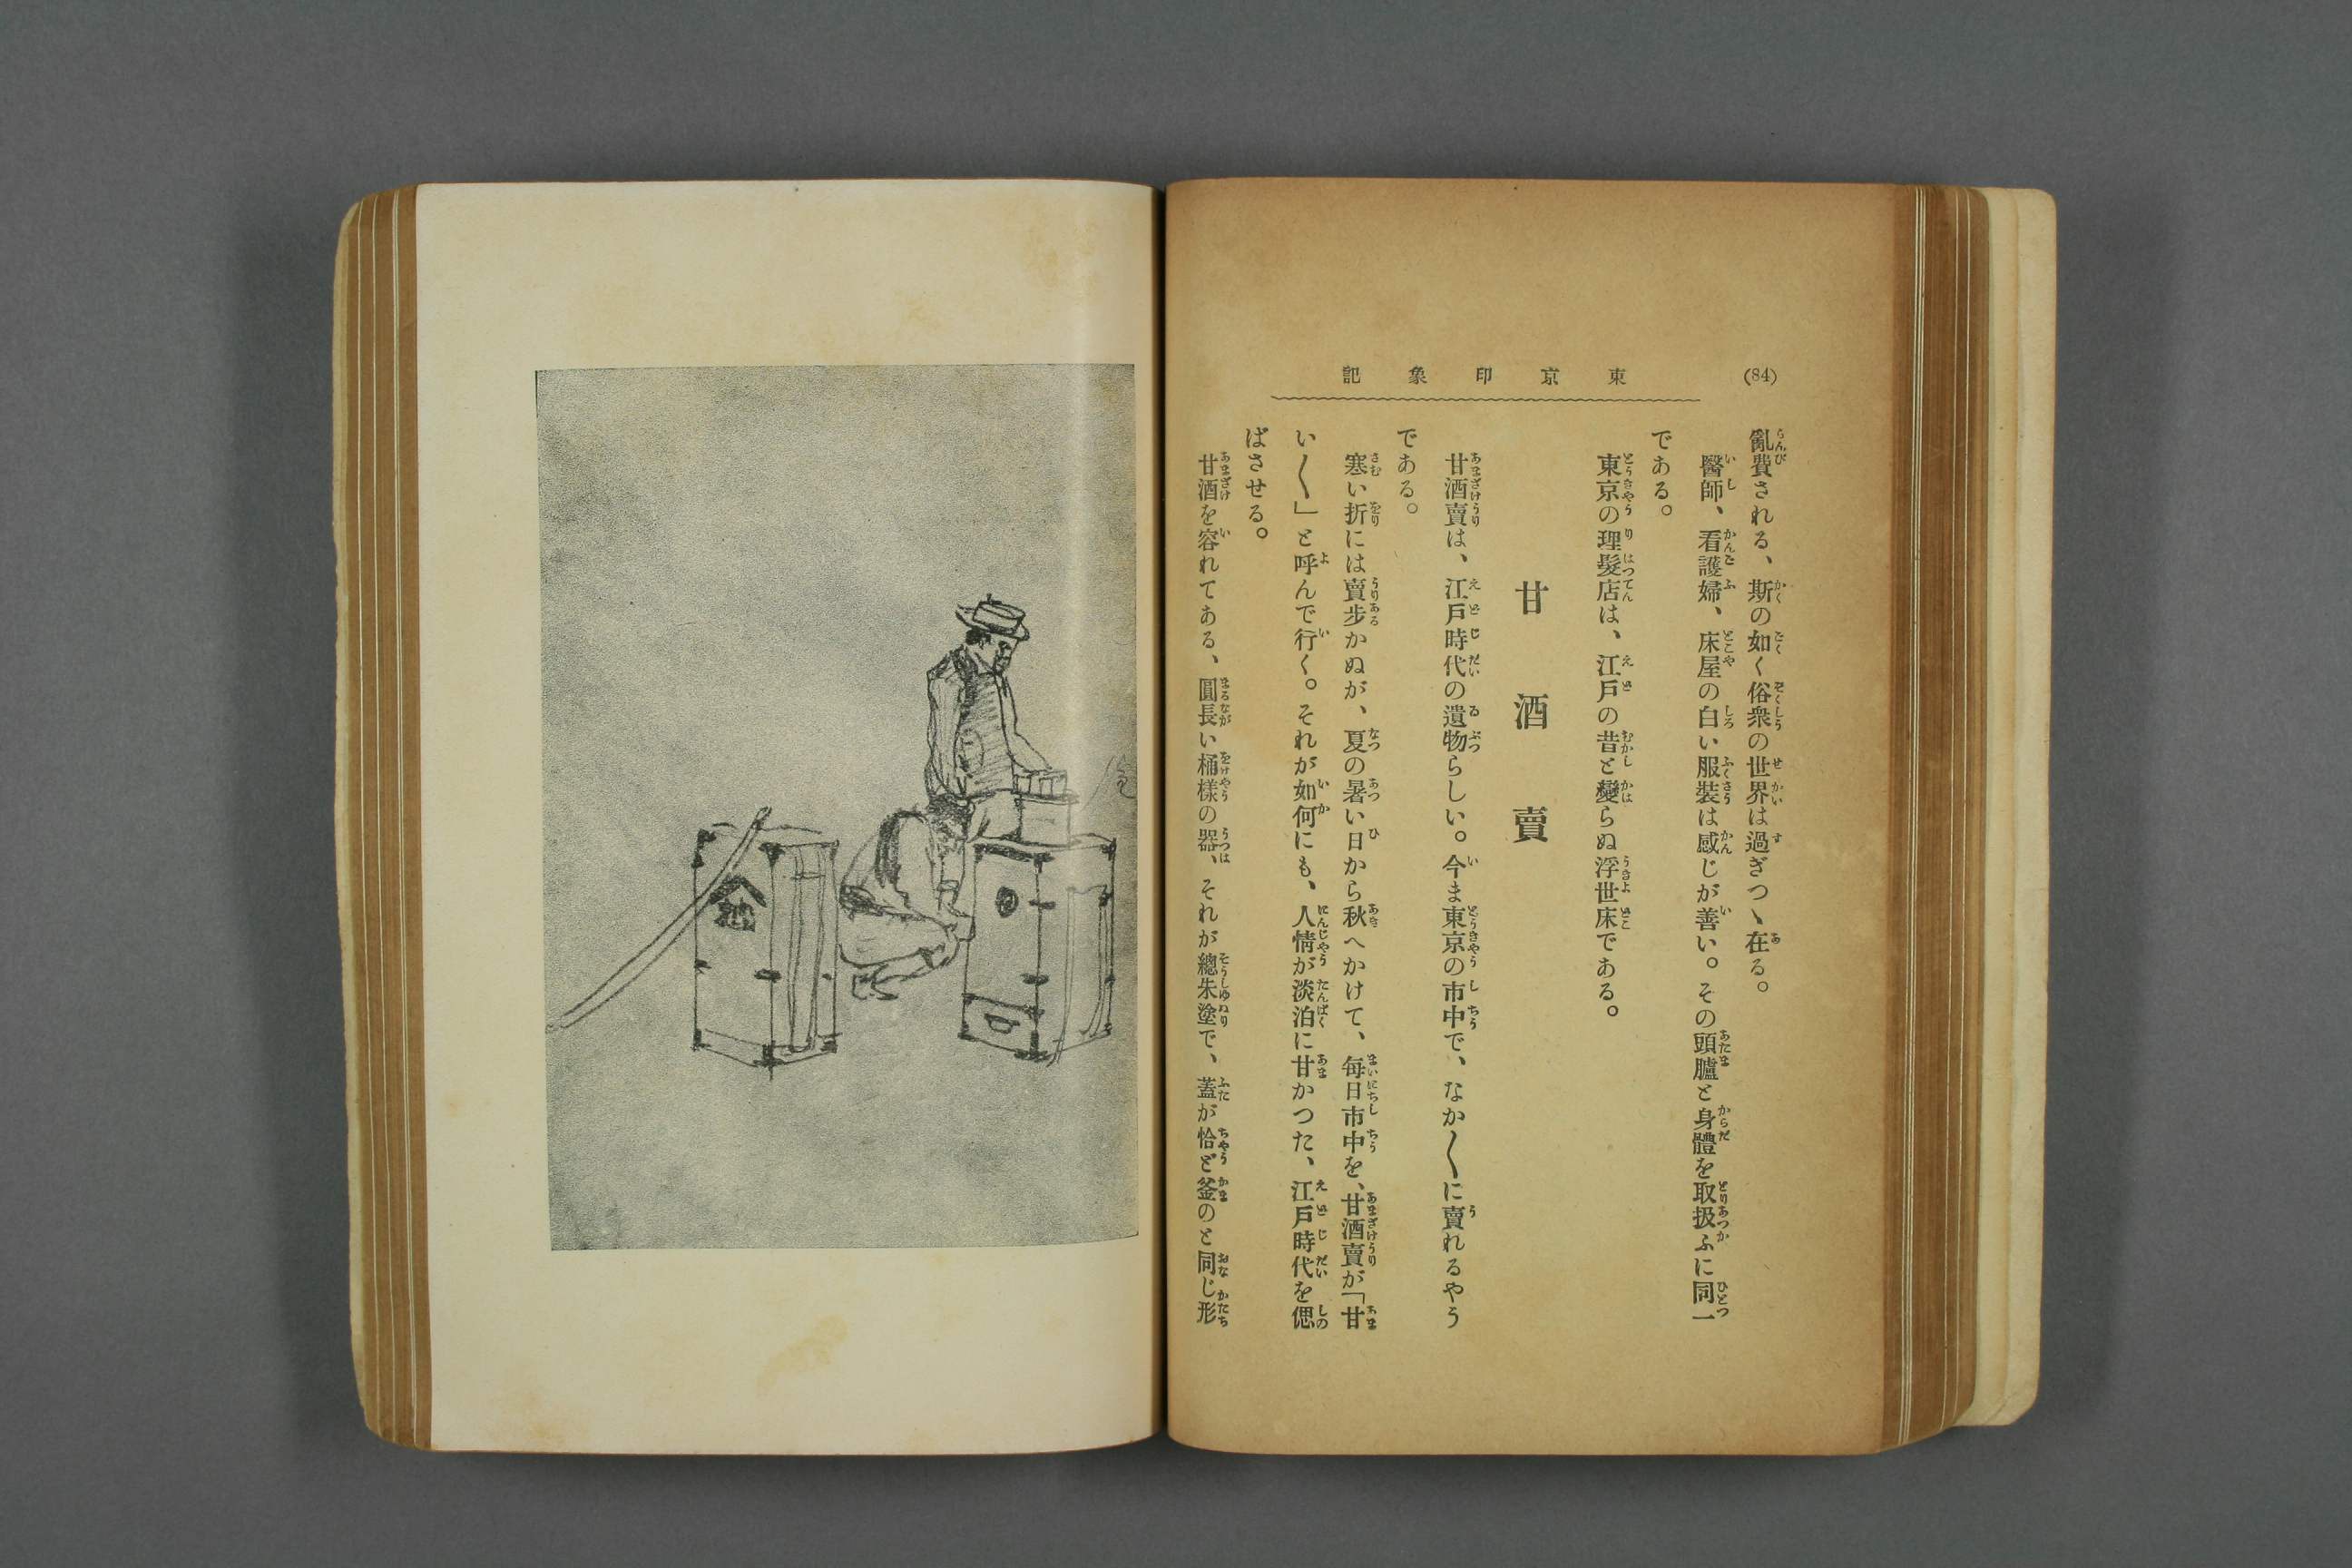 (84)
東京印象記
亂費される、斯の如く俗衆の世界は過ぎつゝ在る。
醫師、看護婦、床屋の白い服裝は感じが善い。その頭臚と身體を取扱ふに同一
である。
東京の理髮店は、江戸の昔と變らぬ浮世床である。
甘酒賣
甘酒賣は、江戸時代の遺物らしい。今ま東京の市中で、なか〱に賣れるやう
である。
寒い折には賣步かぬが、夏の暑い日から秋へかけて、每日市中を、甘酒賣が「甘
い〱」と呼んで行く。それが如何にも、人情が淡泊に甘かつた、江戸時代を偲
ばさせる。
甘酒を容れてある、圓長い桶樣の器、それが總朱塗で、蓋が恰ど釜のと同じ形